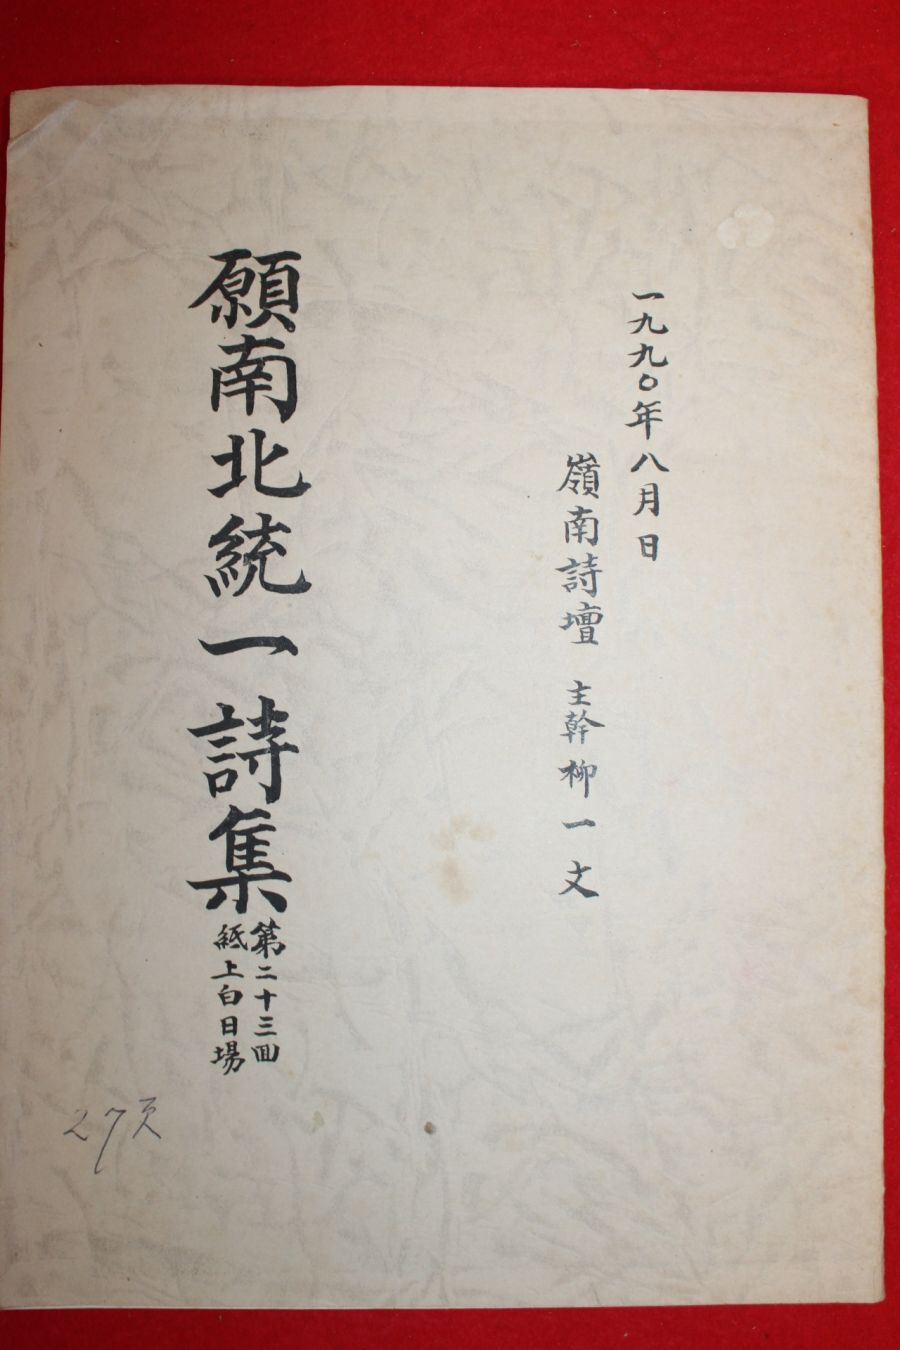 一九九〇年八月 日
嶺南詩壇 主幹 柳一文
願南北統一詩集
第二十三回
紙上白日場
27页